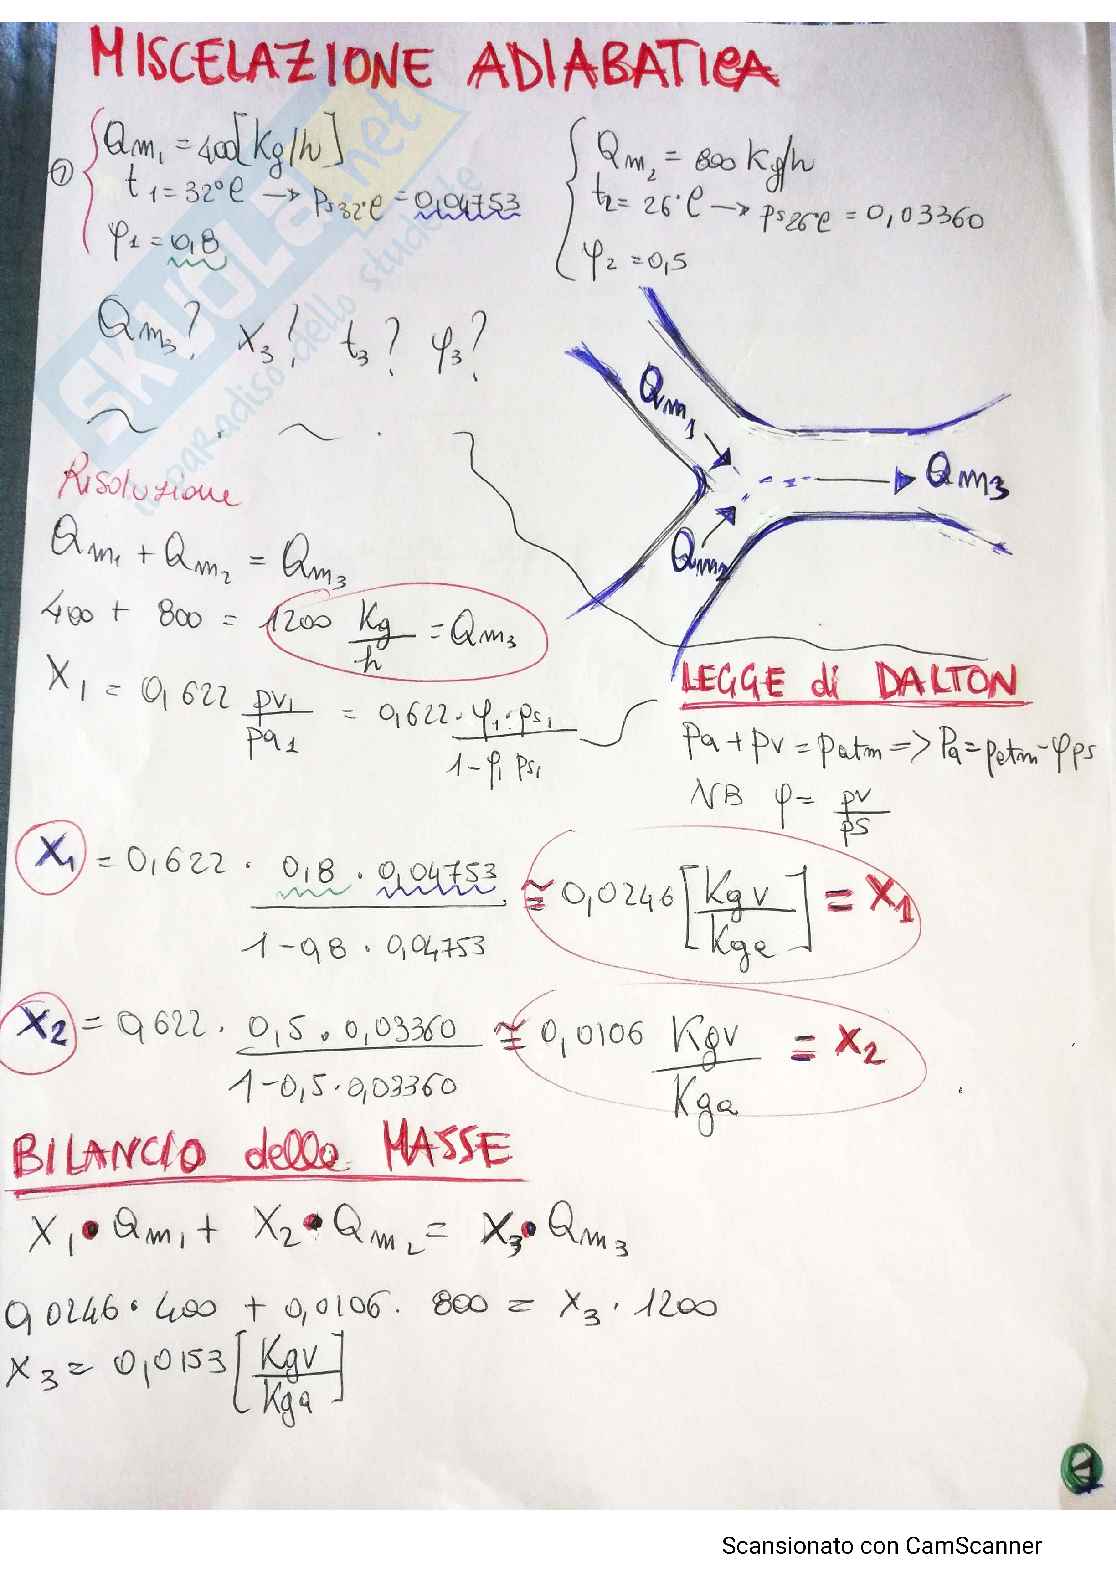 MISCELAZIONE ADIABATICA
① Qm1 = 400 [Kg/h]
t1 = 32°C → ps32°C = 0,04753
φ1 = 0,8
Qm2 = 800 Kg/h
t2 = 26°C → ps26°C = 0,03360
φ2 = 0,5
Qm3? x3? t3? φ3?
SKUOLA.net
il paradiso dello studente
Qm1
Qm3
Qm2
Risoluzione
Qm1 + Qm2 = Qm3
400 + 800 = 1200 Kg/h = Qm3
X1 = 0,622 pv1/pa1 = 0,622 · φ1 · ps1 / 1 - φ1 ps1
LEGGE di DALTON
Pa + pv = patm => Pa = patm - φps
NB φ = pv/ps
X1 = 0,622 · 0,8 · 0,04753 / 1 - 0,8 · 0,04753 ≅ 0,0246 [Kgv/Kga] = X1
X2 = 0,622 · 0,5 · 0,03360 / 1 - 0,5 · 0,03360 ≅ 0,0106 Kgv/Kga = X2
BILANCIO delle MASSE
X1 · Qm1 + X2 · Qm2 = X3 · Qm3
0,0246 · 400 + 0,0106 · 800 = X3 · 1200
X3 = 0,0153 [Kgv/Kga]
1
Scansionato con CamScanner